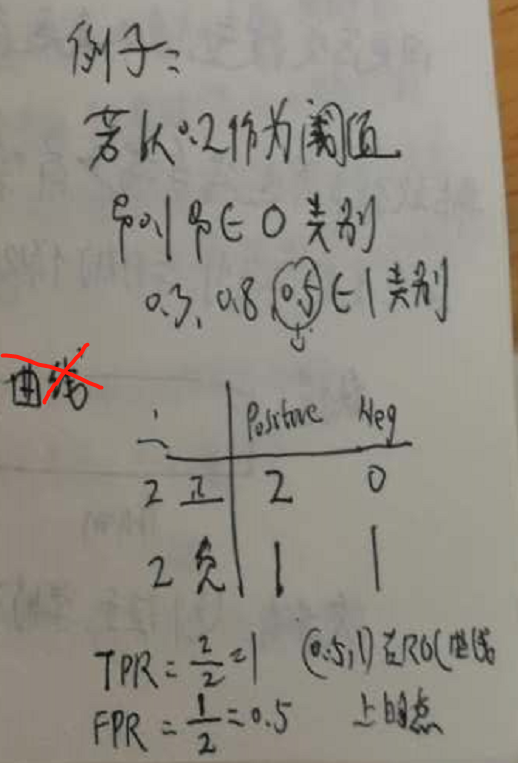 例子:
若以0.2作为阈值
即0.1即∈0类别
0.3、0.8、0.5∈1类别
曲线
Positive Neg
2 正 2 0
2 负 1 1
TPR = 2/2 = 1 (0.5,1)在ROC曲线
FPR = 1/2 = 0.5 上的点